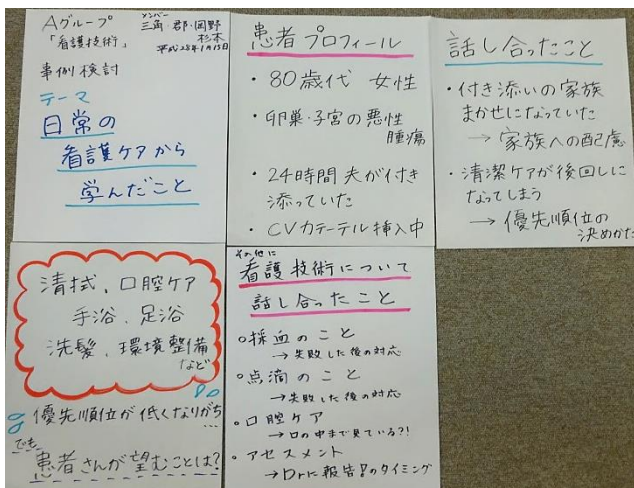 Aグループ
「看護技術」
メンバー
三角 郡・岡野
杉本
平成28年1月15日
事例検討
テーマ
日常の
看護ケアから
学んだこと
患者プロフィール
・80歳代 女性
・卵巣・子宮の悪性
腫瘍
・24時間夫が付き
添っていた
・CVカテーテル挿入中
話し合ったこと
・付き添いの家族
まかせになっていた
→ 家族への配慮
・清潔ケアが後回しに
なってしまう
→ 優先順位の
決めかた
清拭、口腔ケア
手浴、足浴
洗髪、環境整備
など
優先順位が低くなりがち
…
でも
患者さんが望むことは?
その他に
看護技術について
話し合ったこと
○採血のこと
→失敗した後の対応
○点滴のこと
→失敗した後の対応
○口腔ケア
→口の中まで見ている?!
○アセスメント
→Drに報告するタイミング